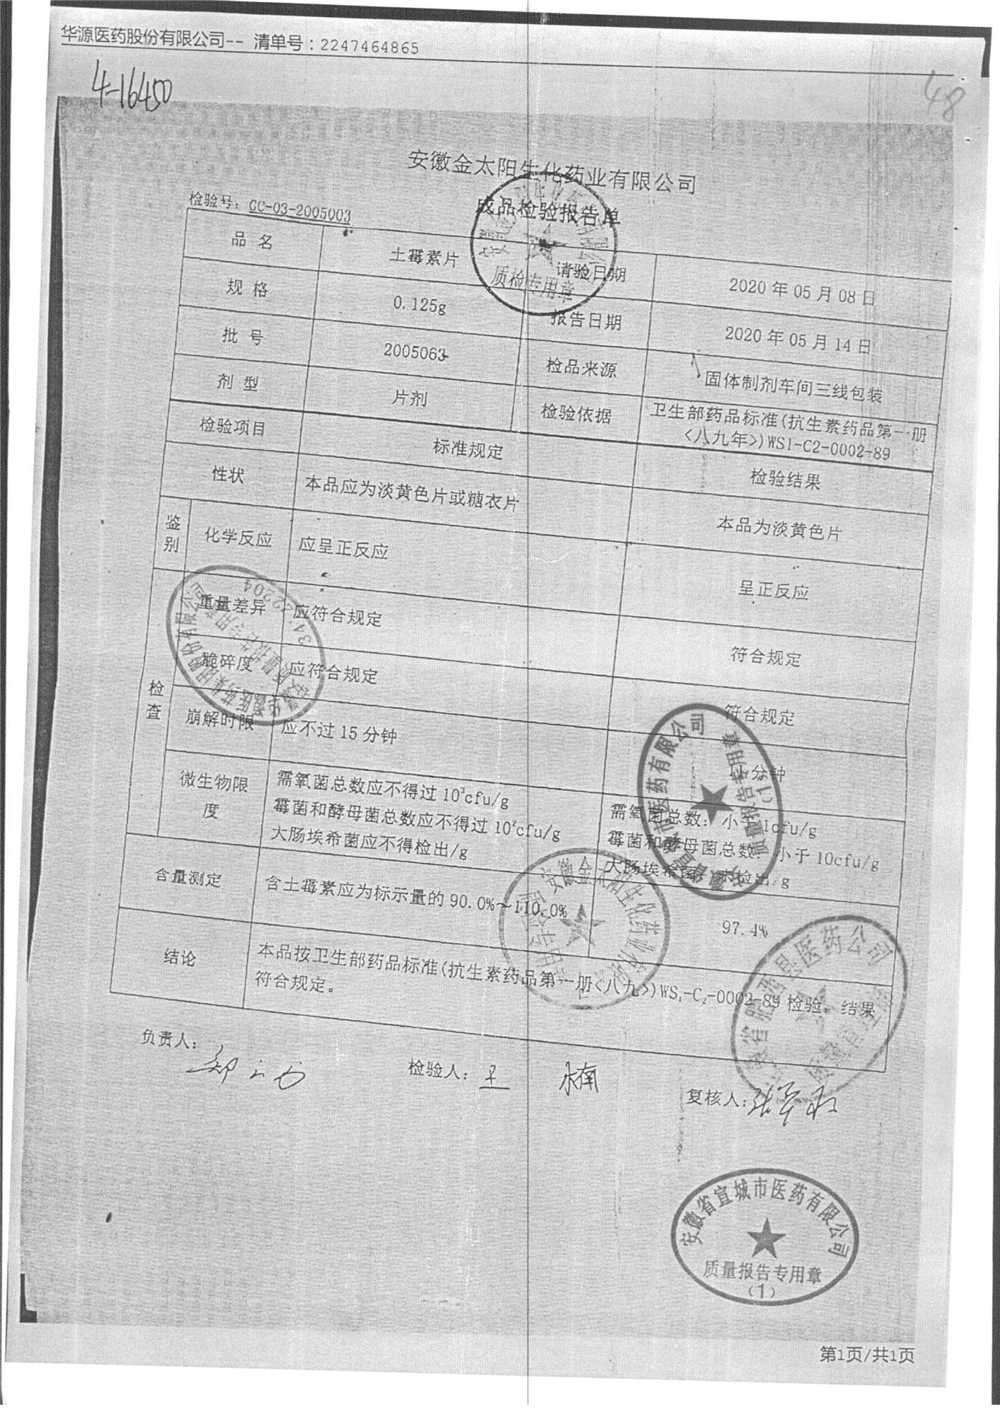 华源医药股份有限公司-- 清单号：2247464865
4-16450
48
安徽金太阳生化药业有限公司
成品检验报告单
检验号：GC-03-2005003
品名 土霉素片 请验日期 2020年05月08日
规格 0.125g 报告日期 2020年05月14日
批号 2005063 检品来源 固体制剂车间三线包装
剂型 片剂 检验依据 卫生部药品标准(抗生素药品第一册
<八九年>)WS1-C2-0002-89
检验项目 标准规定 检验结果
性状 本品应为淡黄色片或糖衣片 本品为淡黄色片
鉴别 化学反应 应呈正反应 呈正反应
检查 重量差异 应符合规定 符合规定
脆碎度 应符合规定 符合规定
崩解时限 应不过15分钟 分钟
微生物限度 需氧菌总数应不得过10³cfu/g 需氧菌总数：小于 cfu/g
霉菌和酵母菌总数应不得过10²cfu/g 霉菌和酵母菌总数：小于10cfu/g
大肠埃希菌应不得检出/g 大肠埃希菌：未检出/g
含量测定 含土霉素应为标示量的90.0%～110.0% 97.4%
结论 本品按卫生部药品标准(抗生素药品第一册<八九>)WS₁-C₂-0002-89检验，结果
符合规定。
负责人： 检验人：王 楠 复核人：
质检专用章
安徽省宣城市医药有限公司
质量报告专用章
(1)
安徽省宣城市医药有限公司
质量报告专用章
(1)
第1页/共1页